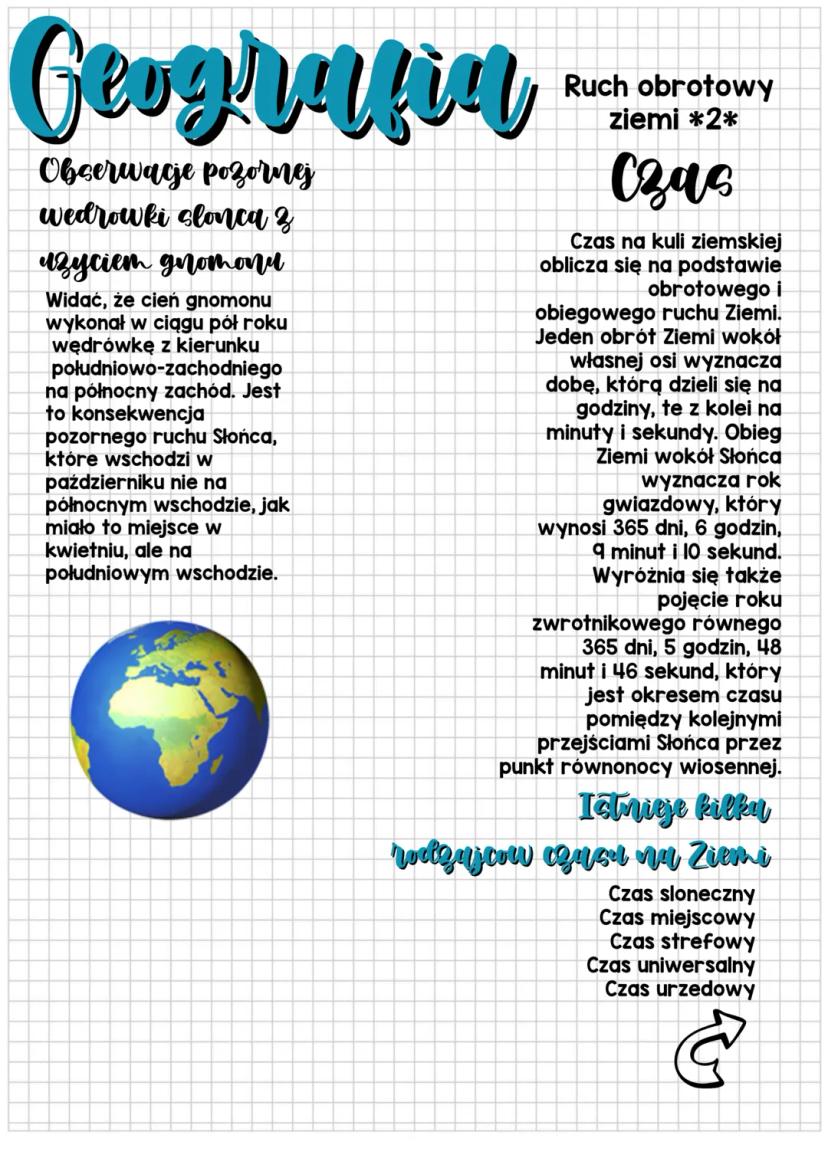 Geografia
Ruch obrotowy
ziemi *2*
Obserwacje pozornej
wedrowki slonca z
uzyciem gnomonu
Widać, że cień gnomonu
wykonał w ciągu pół roku
wędrówkę z kierunku
południowo-zachodniego
na północny zachód. Jest
to konsekwencja
pozornego ruchu Słońca,
które wschodzi w
październiku nie na
północnym wschodzie, jak
miało to miejsce w
kwietniu, ale na
południowym wschodzie.
Czas
Czas na kuli ziemskiej
oblicza się na podstawie
obrotowego i
obiegowego ruchu Ziemi.
Jeden obrót Ziemi wokół
własnej osi wyznacza
dobę, którą dzieli się na
godziny, te z kolei na
minuty i sekundy. Obieg
Ziemi wokół Słońca
wyznacza rok
gwiazdowy, który
wynosi 365 dni, 6 godzin,
9 minut i 10 sekund.
Wyróżnia się także
pojęcie roku
zwrotnikowego równego
365 dni, 5 godzin, 48
minut i 46 sekund, który
jest okresem czasu
pomiędzy kolejnymi
przejściami Słońca przez
punkt równonocy wiosennej.
Istnieje kilka
rodzajcow czasu na Ziemi
Czas sloneczny
Czas miejscowy
Czas strefowy
Czas uniwersalny
Czas urzedowy